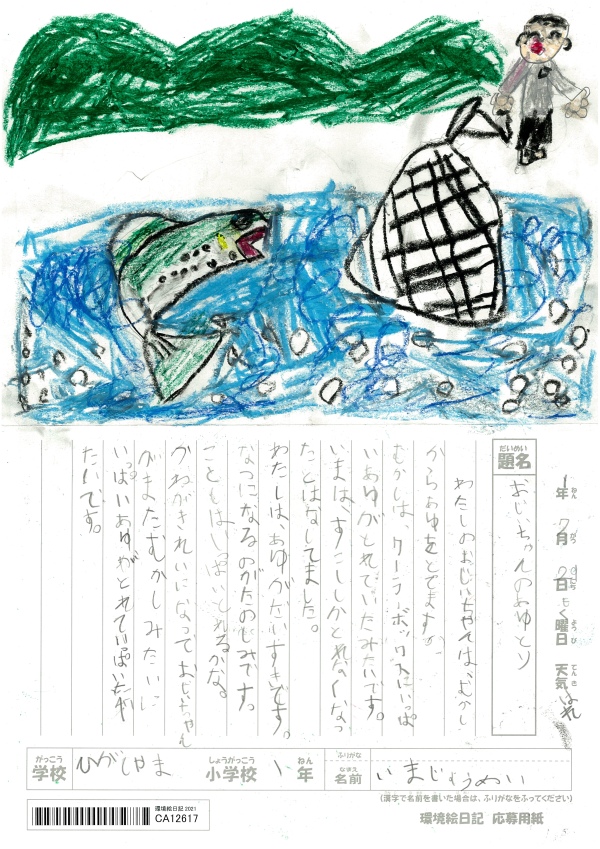 1年 7月 29日 もく曜日 天気 はれ
だいめい
題名 おじいちゃんのあゆとり
わたしのおじいちゃんは、むかし
からあゆをとてますが、
むかしは、クーラーボックスにいっぱ
いあゆがとれていたみたいです。
いまは、すこししかとれなくなっ
たとはなしてました。
わたしは、あゆがだいすきです。
なつになるのがたのしみです。
ことしは、いっぱいとれるかな。
かわがきれいになっておじいちゃん
がまたむかしみたいに
いっぱいあゆがとれていっぱいたべ
たいです。
がっこう しょうがっこう ねん ふりがな
学校 ひがしやま 小学校 1年 なまえ 名前 いまじょうめい
(漢字で名前を書いた場合は、ふりがなをふってください)
環境絵日記 2021
CA12617
環境絵日記 応募用紙